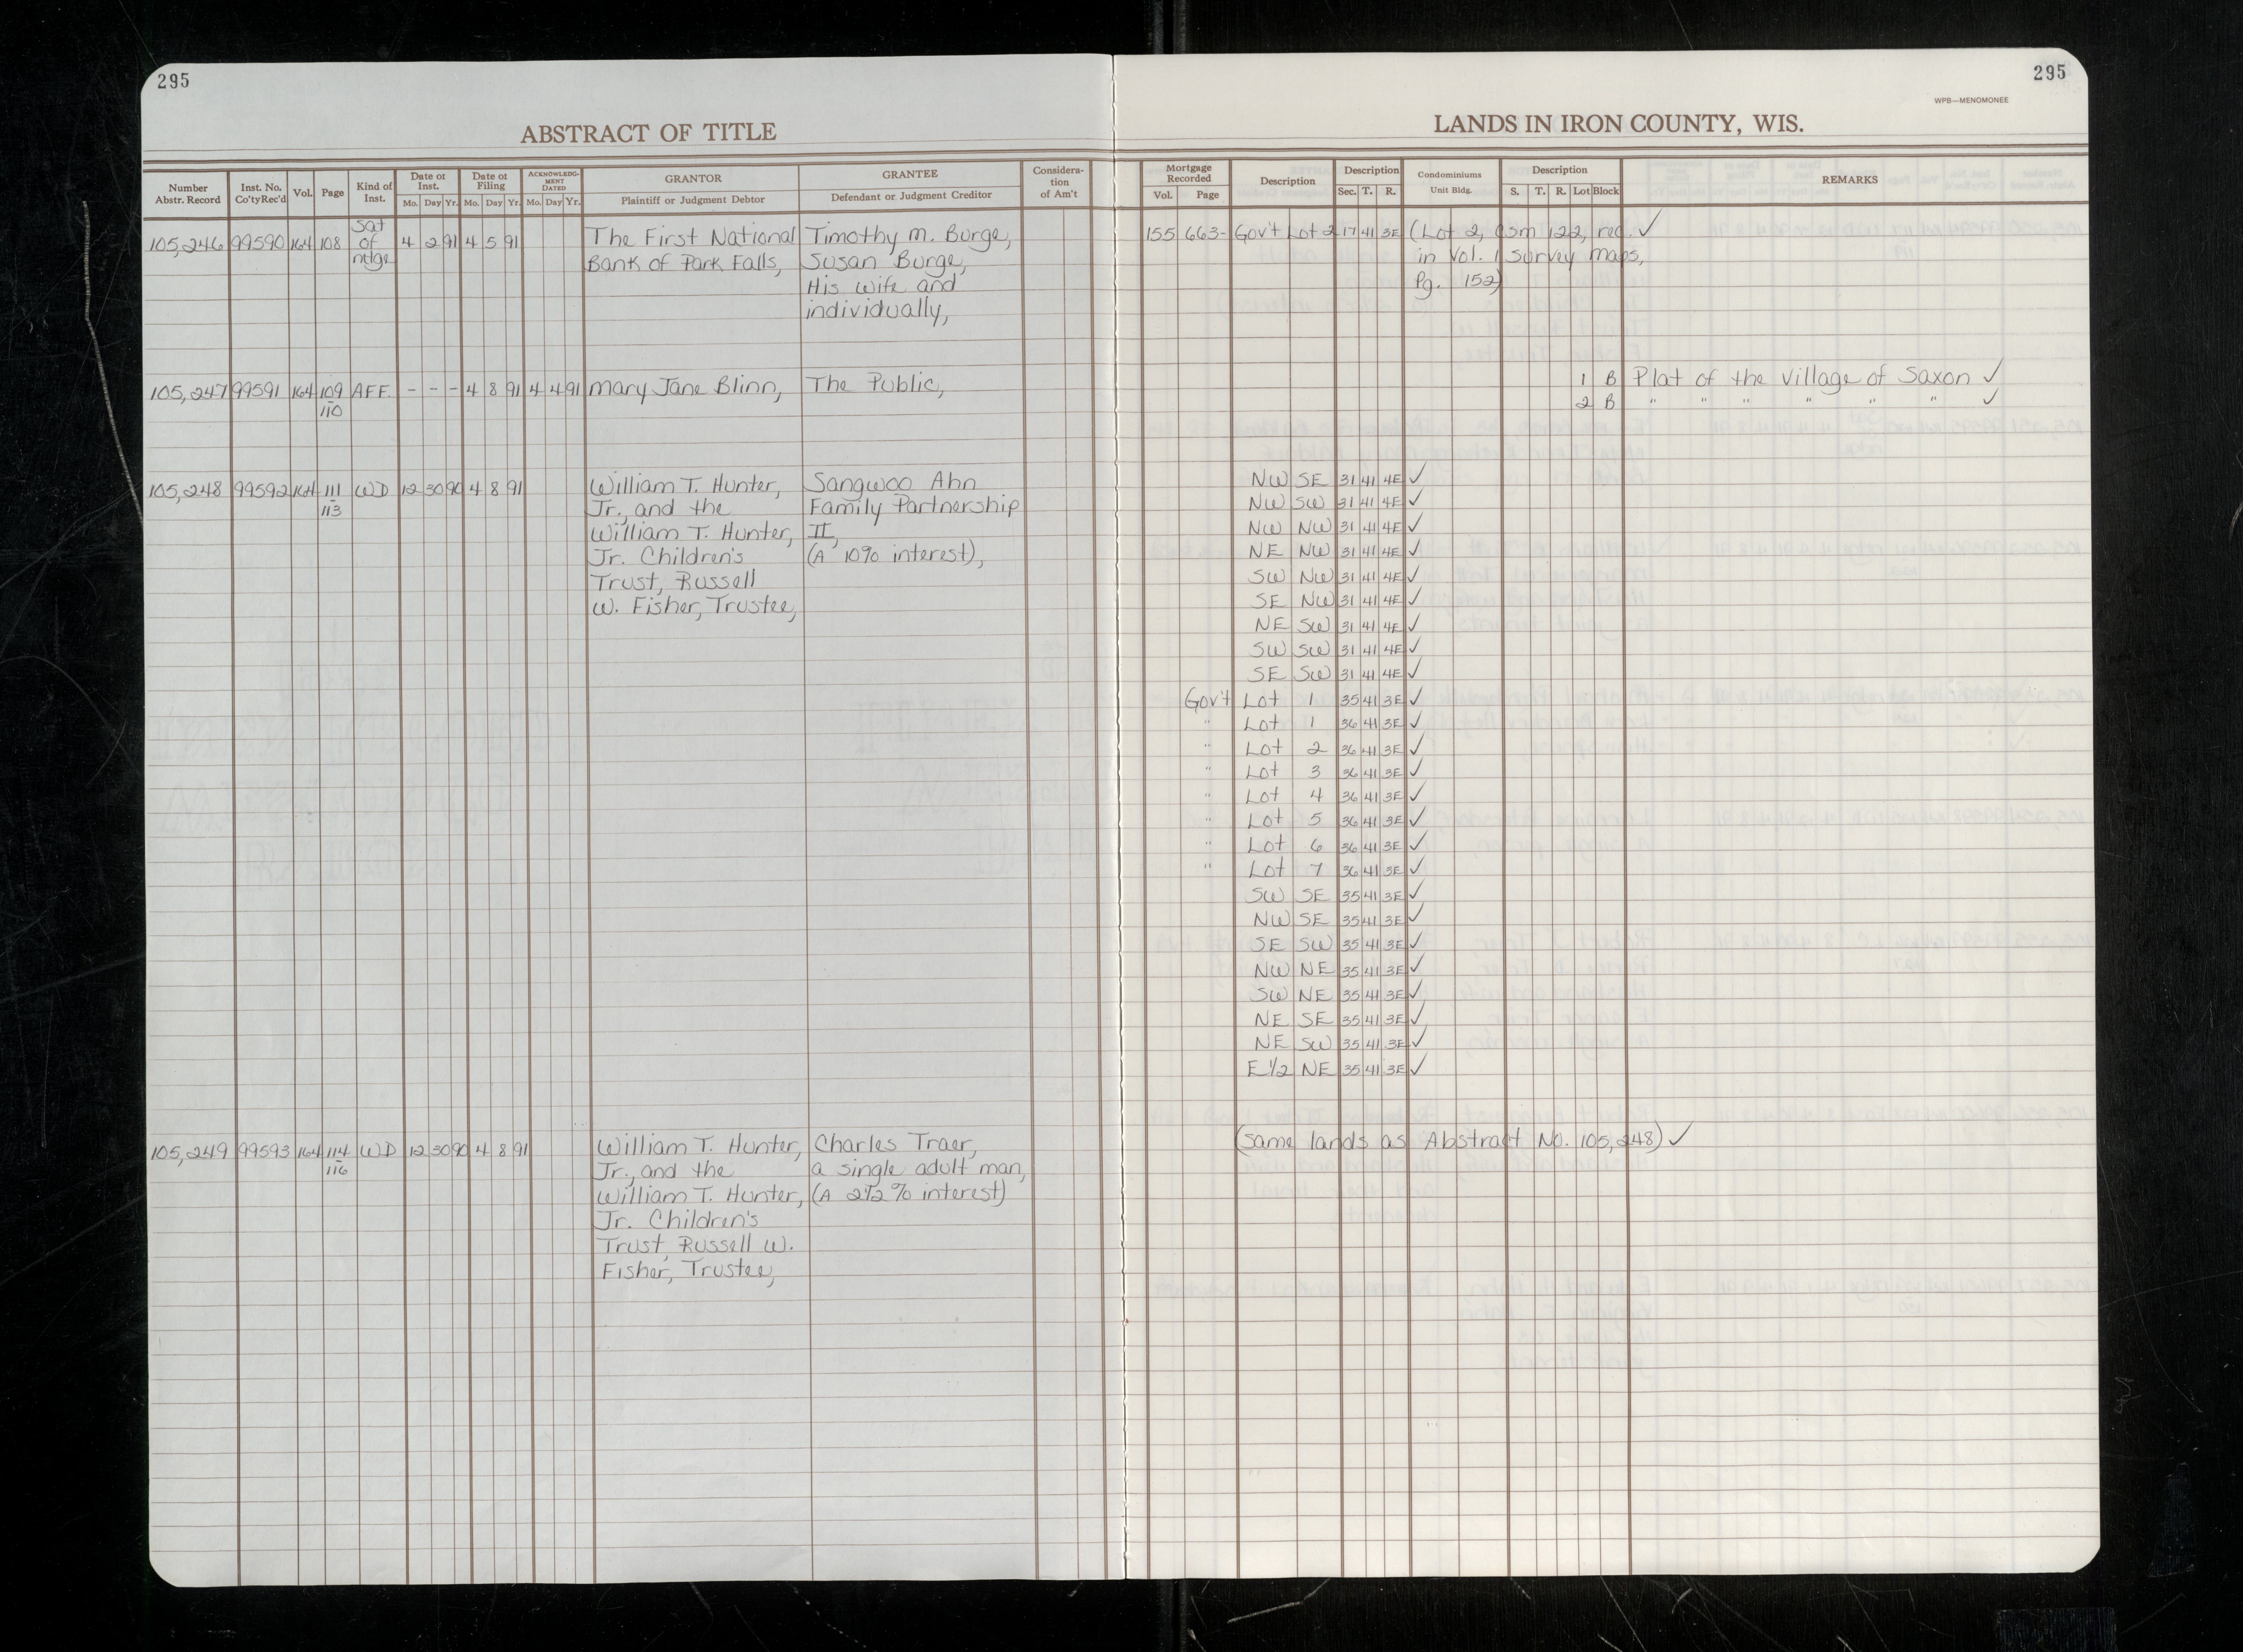 295
295
WPB—MENOMONEE
ABSTRACT OF TITLE
LANDS IN IRON COUNTY, WIS.
Number Abstr. Record | Inst. No. Co'ty Rec'd | Vol. | Page | Kind of Inst. | Date of Inst. Mo. Day Yr. | Date of Filing Mo. Day Yr. | ACKNOWLEDGMENT DATED Mo. Day Yr. | GRANTOR Plaintiff or Judgment Debtor | GRANTEE Defendant or Judgment Creditor | Consideration of Am't | Mortgage Recorded Vol. Page | Description | Description Sec. T. R. | Condominiums Unit Bldg. | Description S. T. R. Lot Block | REMARKS
105,246 99590 164 108 Sat of mtge 4 2 91 4 5 91 The First National Timothy M. Burge, 155 663- Gov't Lot 2 17 41 3E (Lot 2, Csm 122, rec. ✓
Bank of Park Falls, Susan Burge, in Vol. 1 Survey Maps,
His wife and Pg. 152)
individually,
105,247 99591 164 109 - 110 AFF. - - - 4 8 91 4 4 91 Mary Jane Blinn, The Public, 1 B Plat of the Village of Saxon ✓
2 B " " " " " " ✓
105,248 99592 164 111 - 113 WD 12 30 90 4 8 91 William T. Hunter, Sangwoo Ahn NW SE 31 41 4E ✓
Jr., and the Family Partnership NW SW 31 41 4E ✓
William T. Hunter, II, NW NW 31 41 4E ✓
Jr. Children's (A 10% interest), NE NW 31 41 4E ✓
Trust, Russell SW NW 31 41 4E ✓
W. Fisher, Trustee, SE NW 31 41 4E ✓
NE SW 31 41 4E ✓
SW SW 31 41 4E ✓
SE SW 31 41 4E ✓
Gov't Lot 1 35 41 3E ✓
" Lot 1 36 41 3E ✓
" Lot 2 36 41 3E ✓
" Lot 3 36 41 3E ✓
" Lot 4 36 41 3E ✓
" Lot 5 36 41 3E ✓
" Lot 6 36 41 3E ✓
" Lot 7 36 41 3E ✓
SW SE 35 41 3E ✓
NW SE 35 41 3E ✓
SE SW 35 41 3E ✓
NW NE 35 41 3E ✓
SW NE 35 41 3E ✓
NE SE 35 41 3E ✓
NE SW 35 41 3E ✓
E 1/2 NE 35 41 3E ✓
105,249 99593 164 114 - 116 WD 12 30 90 4 8 91 William T. Hunter, Charles Traer, (same lands as Abstract No. 105,248) ✓
Jr., and the a single adult man,
William T. Hunter, (A 2 1/2 % interest)
Jr. Children's
Trust, Russell W.
Fisher, Trustee,